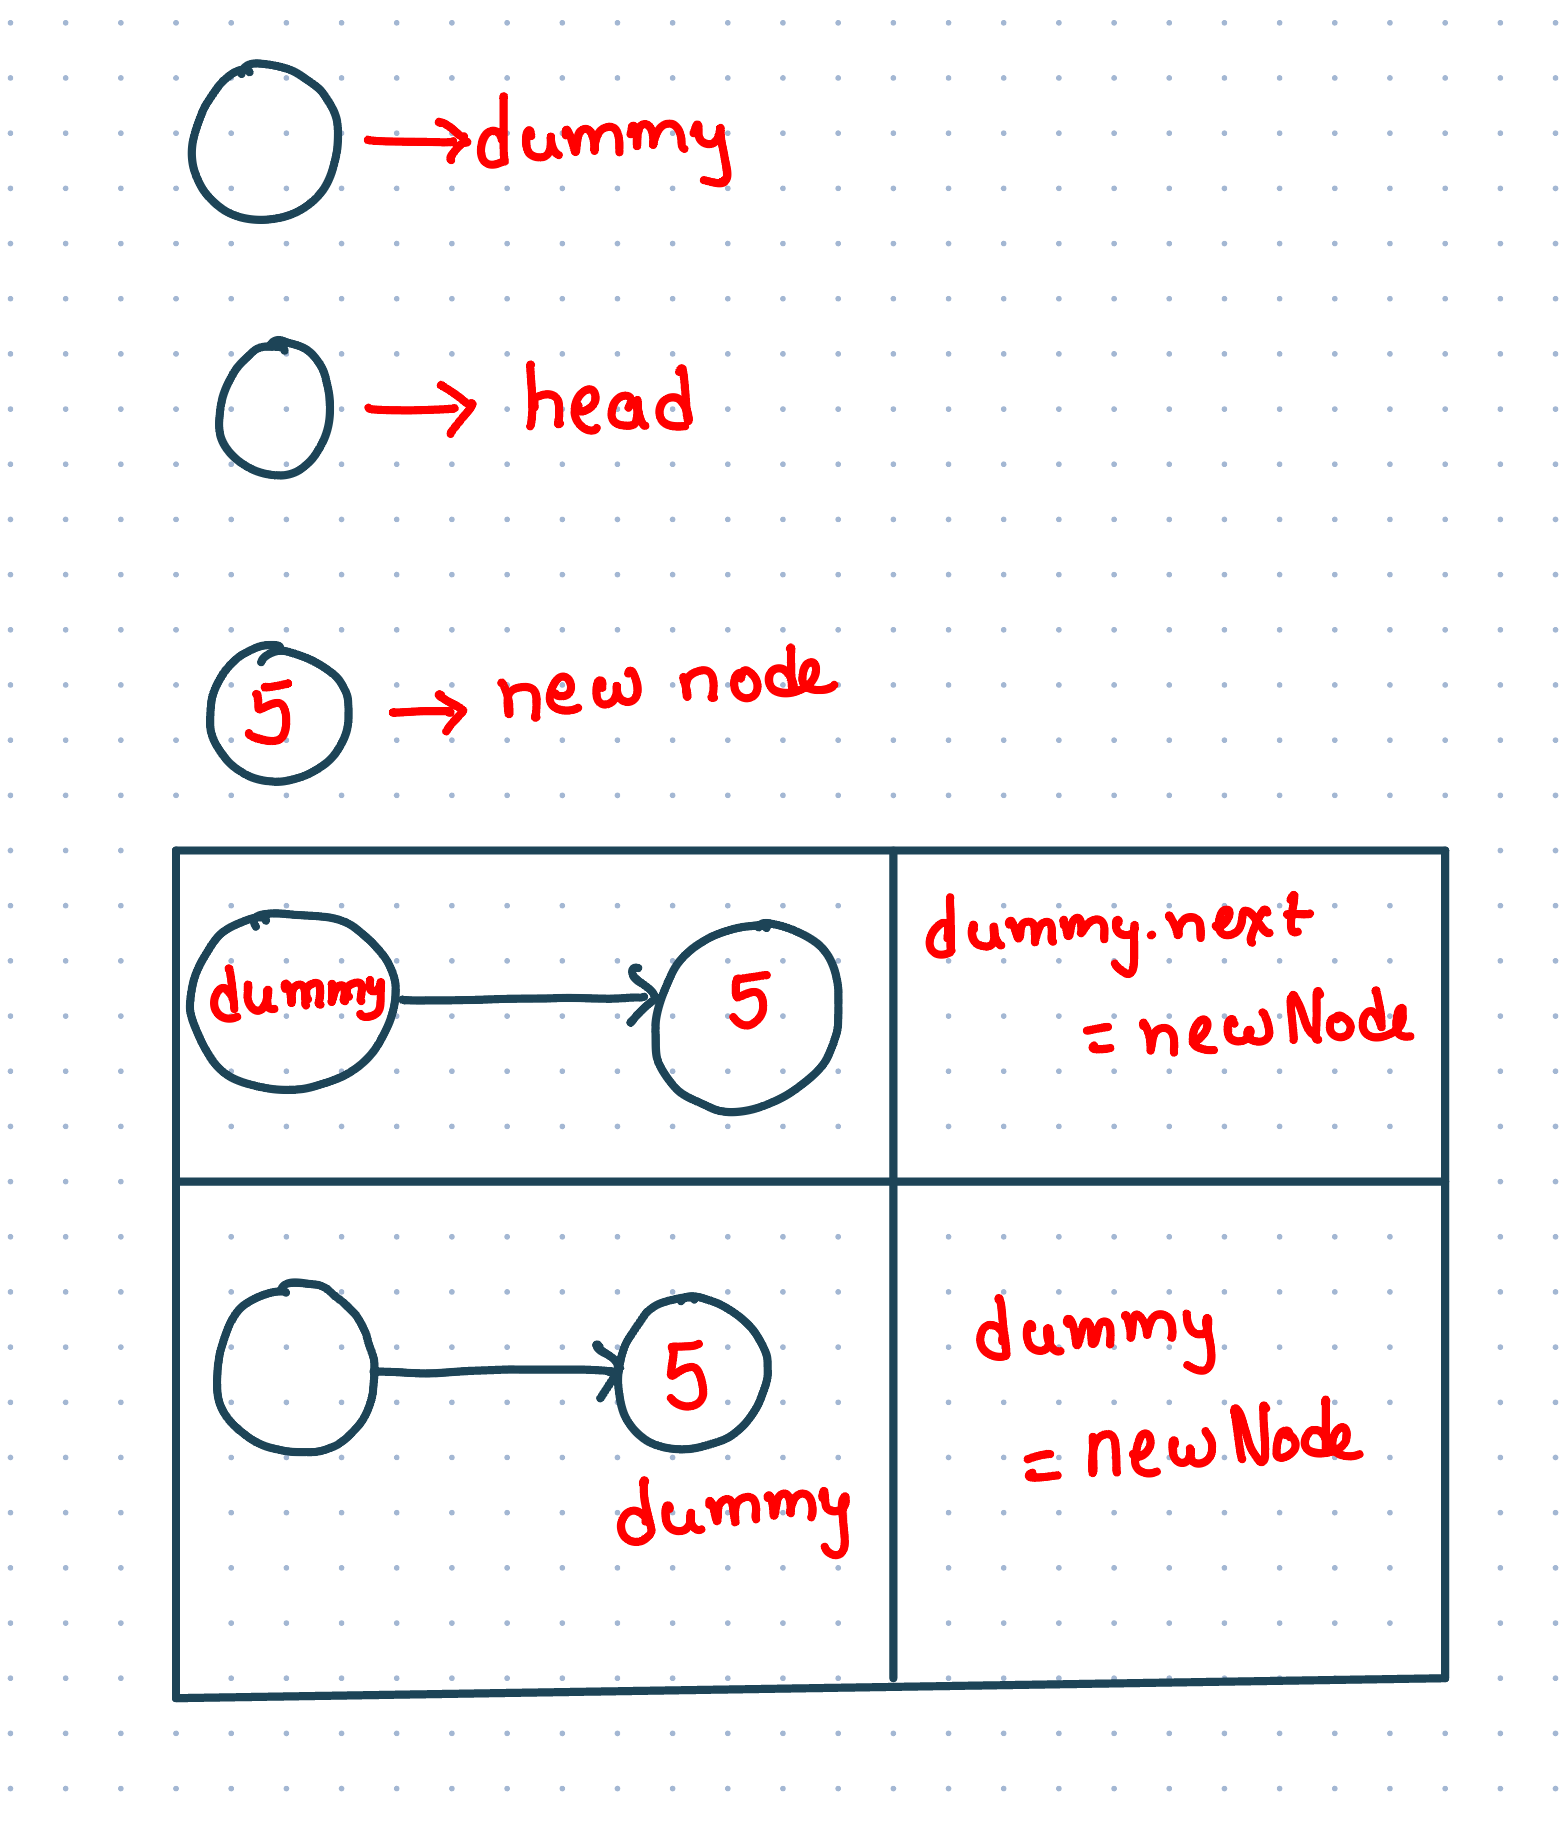 dummy
head
5
new node
dummy
5
dummy.next
= newNode
5
dummy
dummy
= newNode